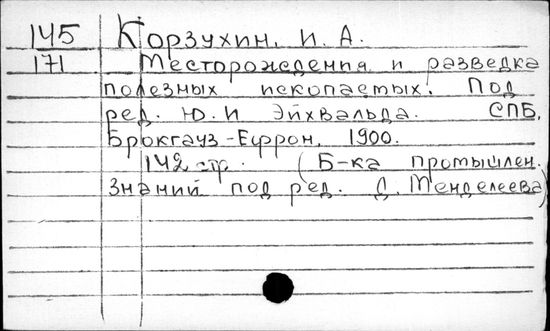 145 Корзухин, И. А.
171 Месторождения и разведка
полезных ископаемых. Под
ред. Ю. И Эйхвальда. СПБ,
Брокгауз-Ефрон, 1900.
142 стр. (Б-ка промышлен.
Знаний под ред. Д. Менделеева)